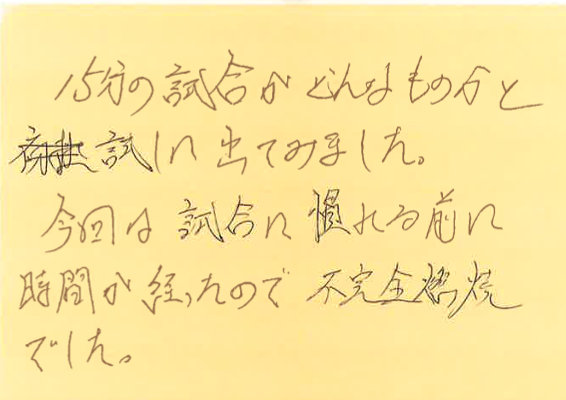 15分の試合がどんなものかと
試しに出てみました。
今回は試合に慣れる前に
時間が経ったので不完全燃焼
でした。